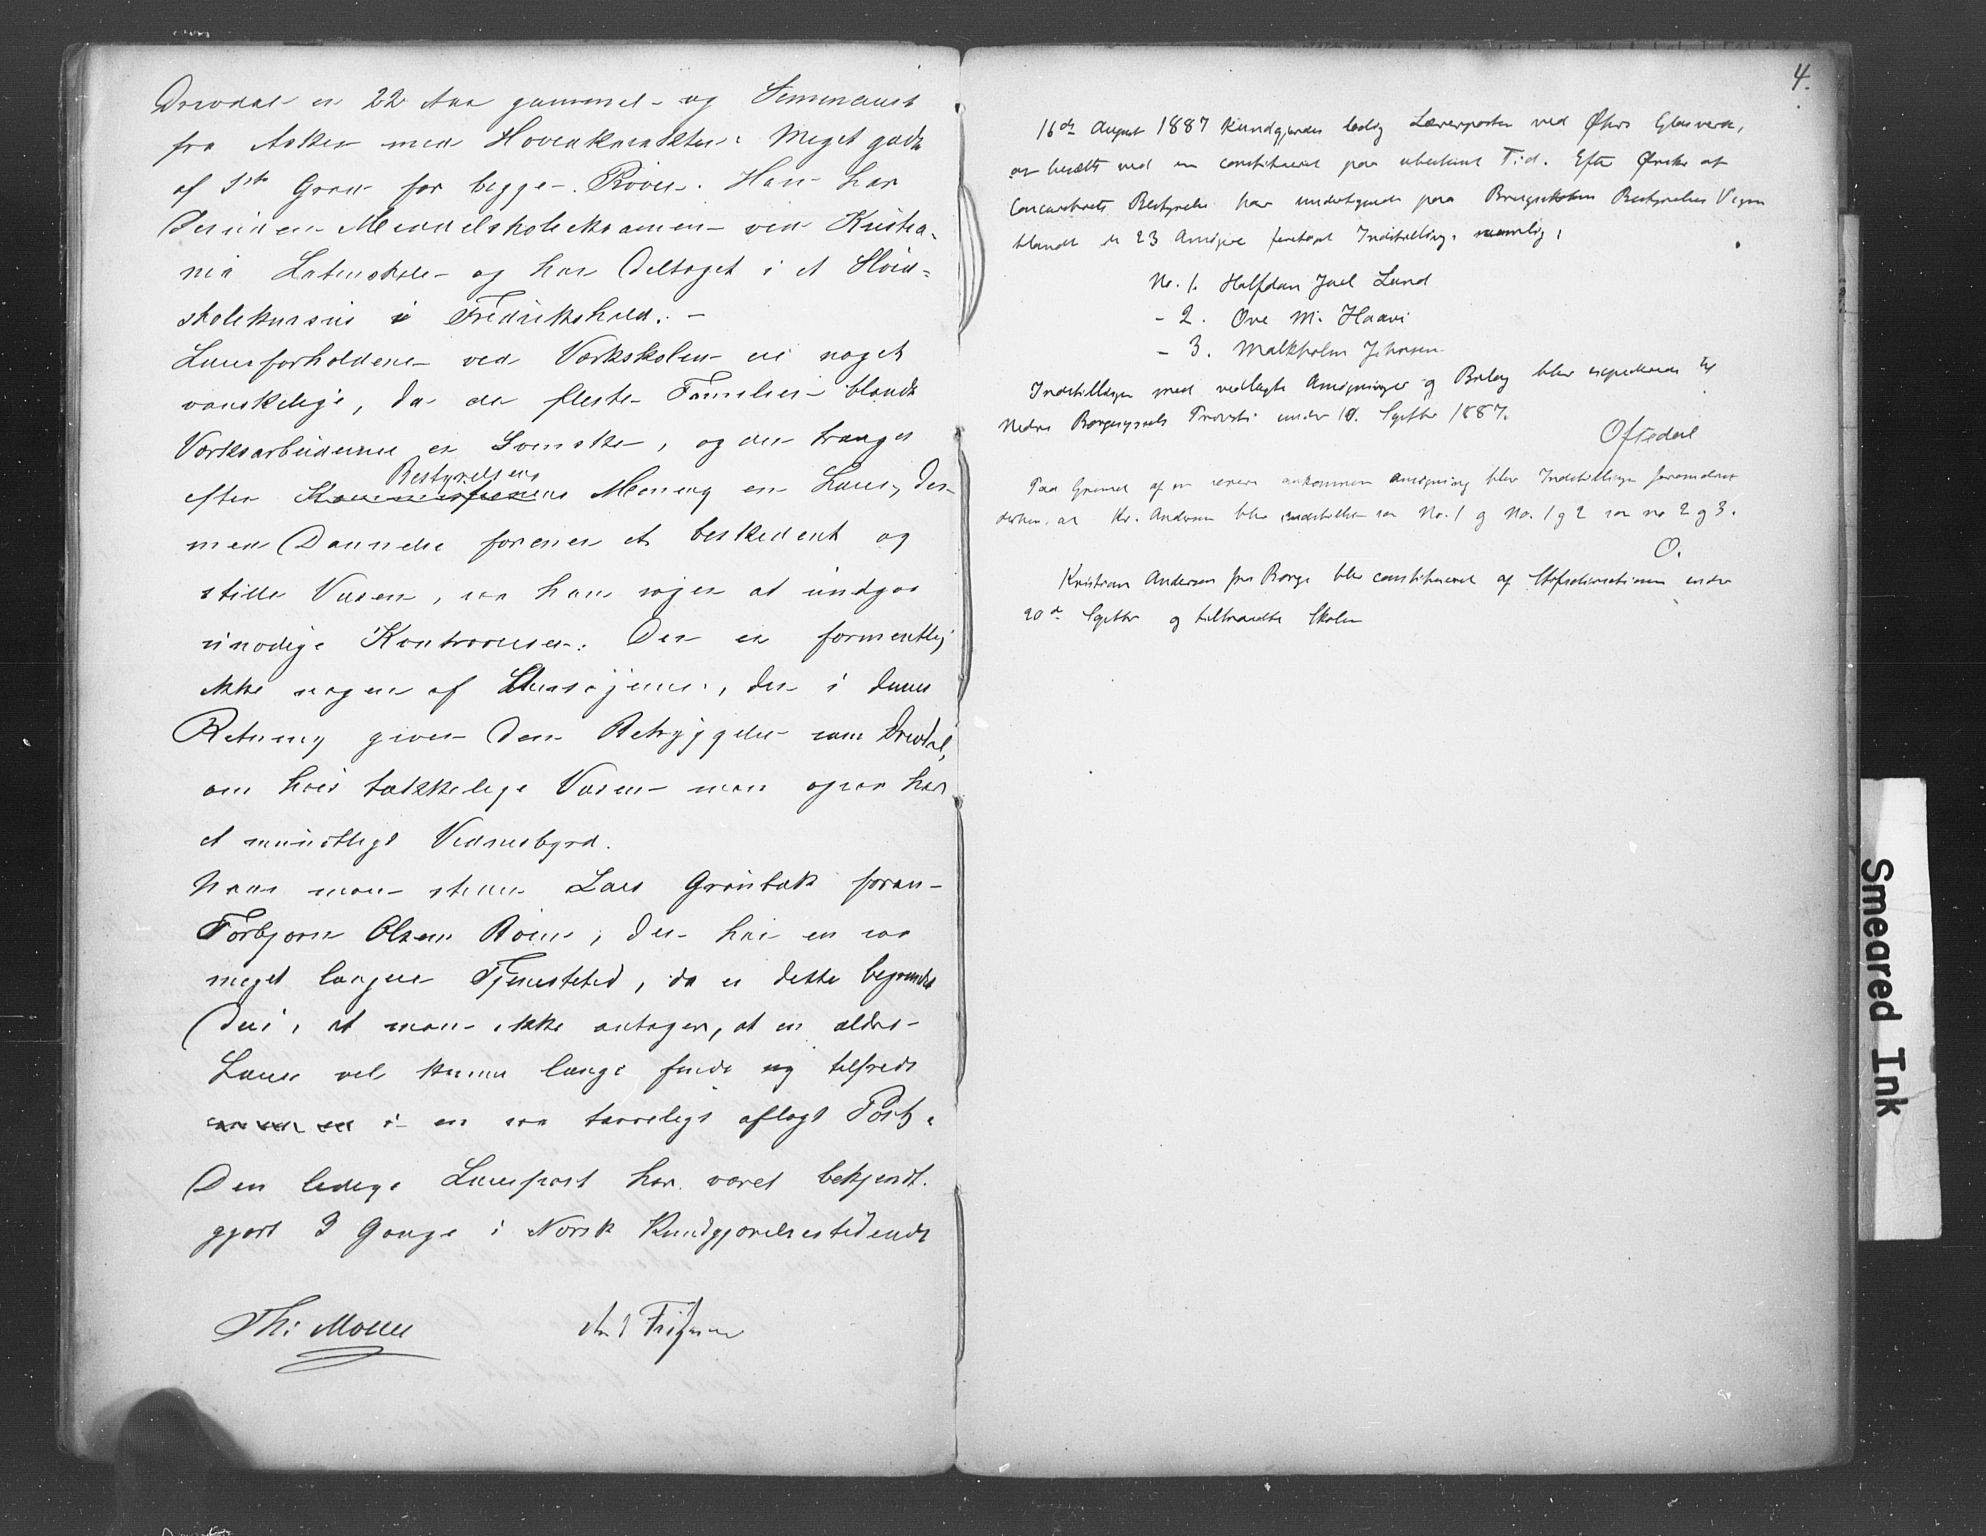 Drevdal er 22 Aar gammel og Seminarist
fra Asker med Hovedkarakter: Meget godt
af 1ste Grad for begge Prøver. Han har
desuden Middelskoleexamen ved Kristia-
nia Latinskole og har deltaget i et Sløid-
skolekursus i Fredrikshald. -
Lærerforholdene ved Værkskolen er noget
vanskelige, da de fleste Familier blandt
Værksarbeiderne er Svenske, og der trænges
Bestyrelsens
efter Kommissionens Mening en Lærer, der
med Dannelse forener et beskedent og
stille Væsen, saa han søger at undgaa
unødige Kontroverser. Der er formentlig
ikke nogen af Ansøgerne, der i denne
Retning giver den Betryggelse som Drevdal,
om hvis tækkelige Væsen man ogsaa har
et mundtligt Vidnesbyrd.
Naar man stiller Lars Grønbæk foran
Torbjørn Olsen Röine, der har en saa
meget længere Tjenestetid, da er dette begrundet
deri, at man ikke antager, at en ældre
Lærer vel kunne længe finde sig tilfreds
i en saa tarvelig aflagt Post.
Den ledige Lærerpost har været bekjendt-
gjort 3 Gange i Norsk Kundgjørelsestidende
Th: Møller
4.
16de August 1887 kundgjordes ledig Lærerposten ved Østre Glasværk,
at besætte ved en constitueret paa ubestemt Tid. Efter Ønske af
Concursboets Bestyrelse har undertegnede paa Brugsskolens Bestyrelses Vegne
blandt de 23 Ansøgere foretaget Indstilling, nemlig:
No. 1. Halfdan Joel Lund
- 2. Ove M. Haavi
- 3. Malkholm Johnsen
Indstillingen med vedlagte Ansøgninger og Bilag blev expederede til
Nedre Borgesyssels Provsti under 10. Septbr 1887.
Oftedal
Paa Grund af en senere ankommen Ansøgning blev Indstillingen forandret
derhen, at Kr. Andersen blev indstillet som No. 1 og No. 1 og 2 som no 2 og 3.
O.
Kristian Andersen fra Borge blev constitueret af Stiftsdirectionen under
20de Septbr og tiltraadte Skolen
Smeared Ink